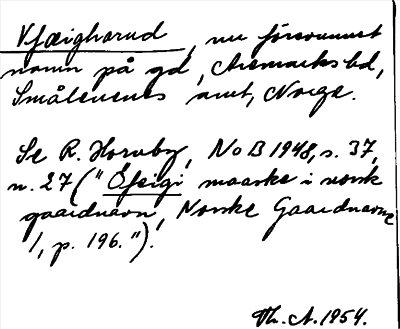 Vfæigharud, nu försvunnet
namn på gd, Aremarks sd,
Smålenenes amt, Norge.
Se R. Hornby, NoB 1948, s. 37,
n. 27 ("Ófeigi maaske i norsk
gaardnavn, Norske Gaardnavne
1, p. 196.").
Th. A. 1954.